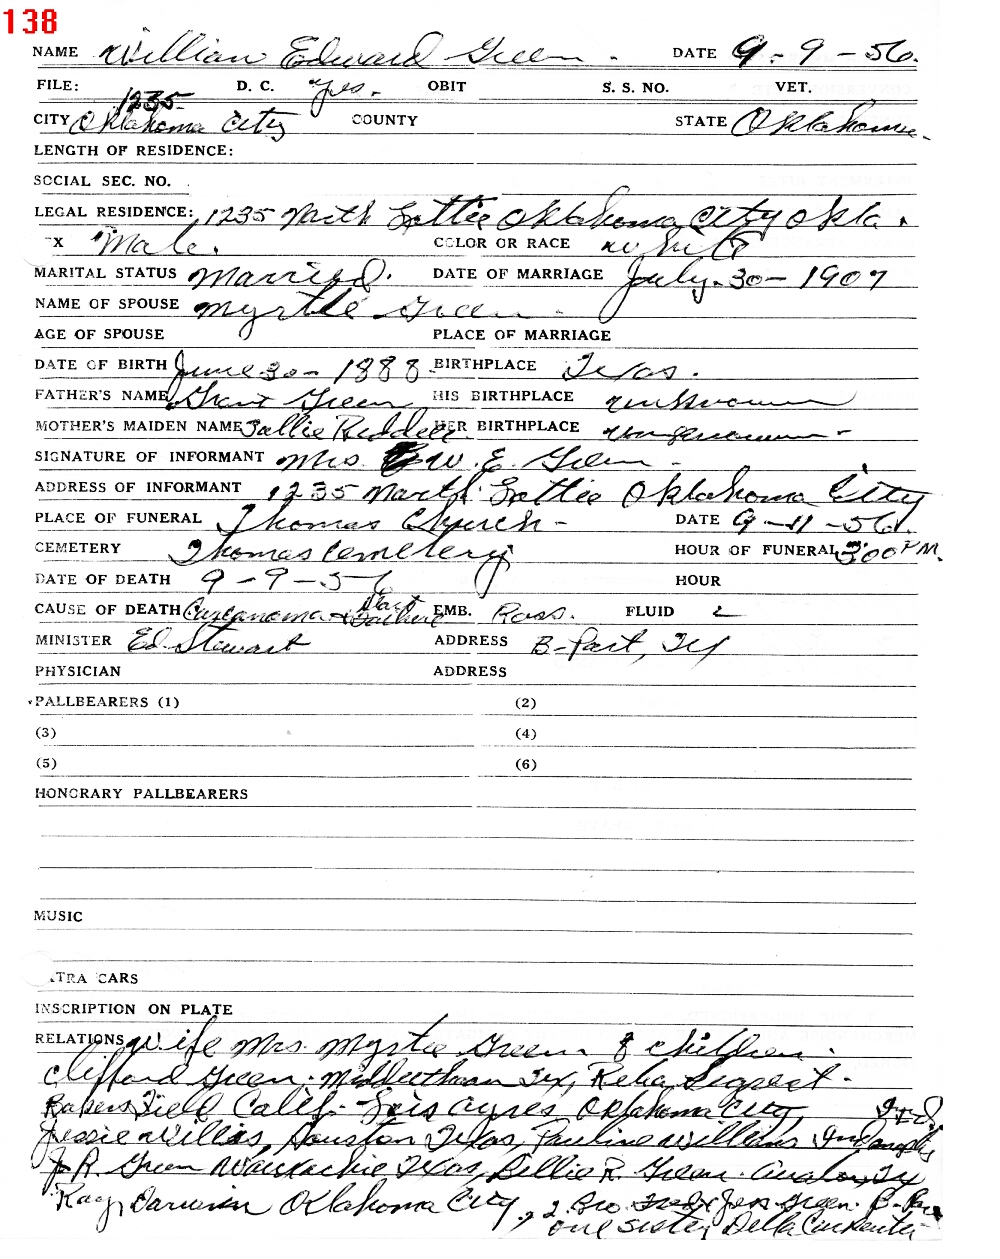 138
NAME William Edward Green. DATE 9-9-56.
FILE: D. C. Yes. OBIT S. S. NO. VET.
1235
CITY Oklahoma City COUNTY STATE Oklahoma.
LENGTH OF RESIDENCE:
SOCIAL SEC. NO.
LEGAL RESIDENCE: 1235 North Lottie Oklahoma City Okla.
EX Male. COLOR OR RACE White
MARITAL STATUS Married. DATE OF MARRIAGE July-30-1907
NAME OF SPOUSE Myrtle Green.
AGE OF SPOUSE PLACE OF MARRIAGE
DATE OF BIRTH June 30-1888 BIRTHPLACE Texas.
FATHER'S NAME Grant Green HIS BIRTHPLACE unknown
MOTHER'S MAIDEN NAME Sallie Riddell HER BIRTHPLACE unknown-
SIGNATURE OF INFORMANT Mrs W. E. Green.
ADDRESS OF INFORMANT 1235 North Lottie Oklahoma City
PLACE OF FUNERAL Thomas Church- DATE 9-11-56.
CEMETERY Thomas Cemetery HOUR OF FUNERAL 3:00 P.M.
DATE OF DEATH 9-9-56 HOUR
CAUSE OF DEATH EMB. Ross. FLUID 2
MINISTER Ed. Stewart ADDRESS
PHYSICIAN ADDRESS
PALLBEARERS (1) (2)
(3) (4)
(5) (6)
HONORARY PALLBEARERS
MUSIC
TRA CARS
INSCRIPTION ON PLATE
RELATIONS Wife Mrs. Myrtle Green 8 children.
Clifford Green. Tex,
Bakersfield Calif- Lois Ayres Oklahoma City
Jessie Willis, Houston Texas, Pauline Williams
J R. Green Waxahachie Texas, Billie R. Green. Avalon, Tx
Ray Oklahoma City, 2 Bro. Green.
one sister Della Carpenter